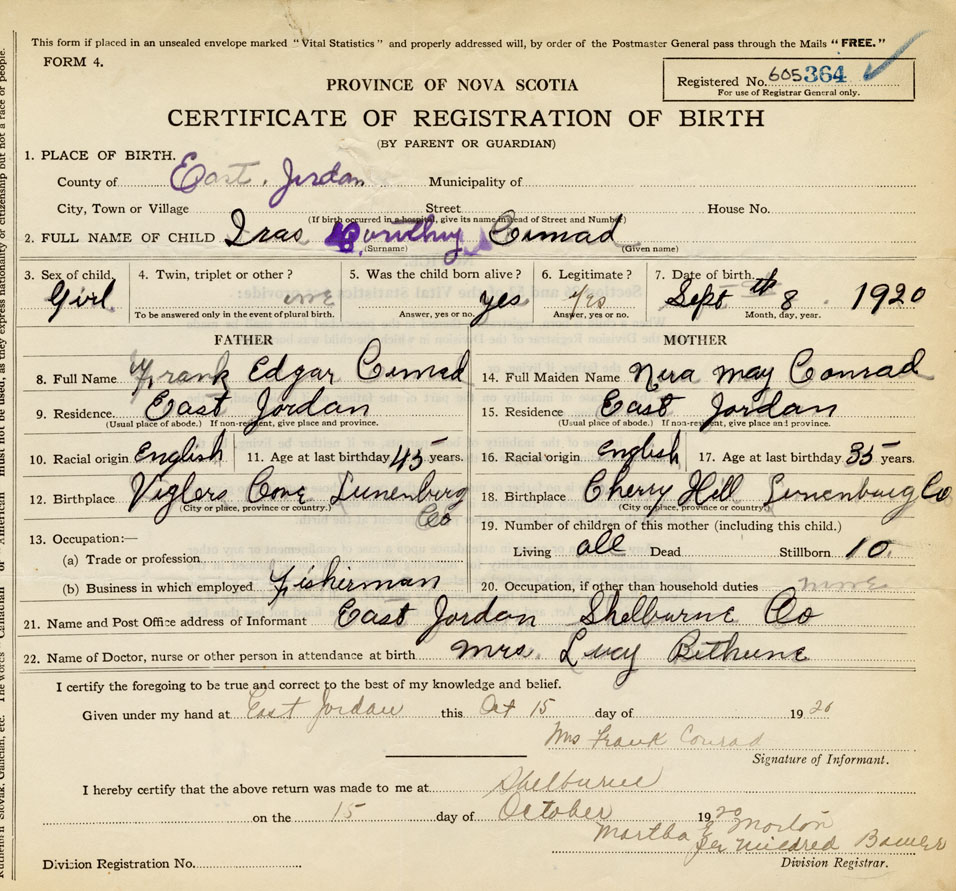 This form if placed in an unsealed envelope marked "Vital Statistics" and properly addressed will, by order of the Postmaster General pass through the Mails "FREE."
FORM 4.
Registered No. 605 364
For use of Registrar General only.
PROVINCE OF NOVA SCOTIA
CERTIFICATE OF REGISTRATION OF BIRTH
(BY PARENT OR GUARDIAN)
1. PLACE OF BIRTH.
County of East Jordan Municipality of
City, Town or Village Street House No.
(If birth occurred in a hospital, give its name instead of Street and Number)
2. FULL NAME OF CHILD Iras Dorithy Conrad
(Surname) (Given name)
3. Sex of child. 4. Twin, triplet or other? 5. Was the child born alive? 6. Legitimate? 7. Date of birth.
Girl one yes yes Sept th 8 1920
To be answered only in the event of plural birth. Answer, yes or no. Answer, yes or no. Month, day, year.
FATHER MOTHER
8. Full Name Frank Edgar Conrad 14. Full Maiden Name Nera may Conrad
9. Residence. East Jordan 15. Residence East Jordan
(Usual place of abode.) If non-resident, give place and province. (Usual place of abode.) If non-resident, give place and province.
10. Racial origin English 11. Age at last birthday 45 years. 16. Racial origin English 17. Age at last birthday 35 years.
12. Birthplace Voglers Cove Lunenburg Co 18. Birthplace Cherry Hill Lunenburg Co
(City or place, province or country.) (City or place, province or country.)
13. Occupation:— 19. Number of children of this mother (including this child.)
(a) Trade or profession Living all Dead Stillborn 10.
(b) Business in which employed Fisherman 20. Occupation, if other than household duties none
21. Name and Post Office address of Informant East Jordan Shelburne Co
22. Name of Doctor, nurse or other person in attendance at birth mrs. Lucy Bethune
I certify the foregoing to be true and correct to the best of my knowledge and belief.
Given under my hand at East Jordan this Oct 15 day of 1920
Mrs Frank Conrad
Signature of Informant.
I hereby certify that the above return was made to me at Shelburne
on the 15 day of October 1920
Martha E Morton
per Mildred Bower
Division Registration No. Division Registrar.